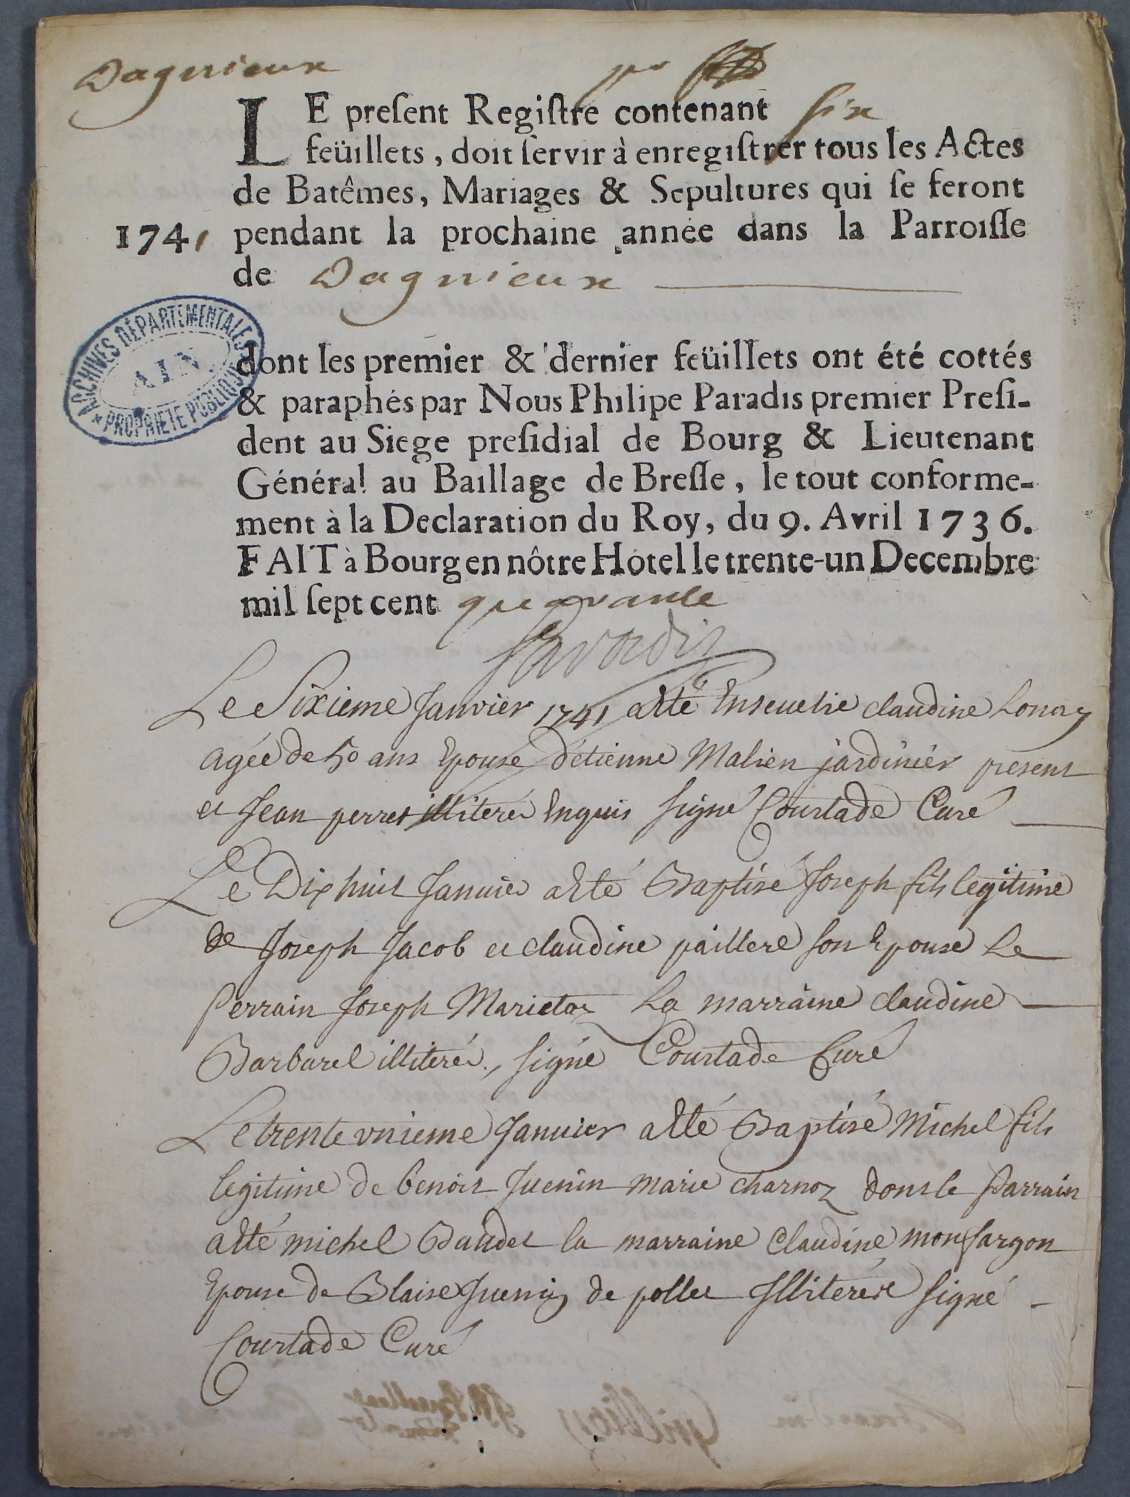 Dagnieux
pr
LE present Registre contenant six
feüillets, doit servir à enregistrer tous les Actes
de Batêmes, Mariages & Sepultures qui se feront
1741 pendant la prochaine année dans la Parroisse
de Dagnieux
ARCHINES DÉPARTEMENTALES
AIN
PROPRIÉTÉ PUBLIQUE
dont les premier & dernier feüillets ont été cottés
& paraphés par Nous Philipe Paradis premier Presi-
dent au Siege presidial de Bourg & Lieutenant
Général au Baillage de Bresse, le tout conforme-
ment à la Declaration du Roy, du 9. Avril 1736.
FAIT à Bourg en nôtre Hôtel le trente-un Decembre
mil sept cent quarante
Paradis
Le Sixieme Janvier 1741 a été Ensevelie claudine Lonay
agée de 50 ans Epouse d'étienne Malien jardinier present
et Jean perret illiteré Enquis signé Courtade Curé
Le Dix huit Janvier a été Baptisé Joseph fils legitime
de Joseph Jacob et claudine paillere son Epouse Le
Perrain Joseph Marietoz La marraine claudine
Barbarel illiteré, signé Courtade Curé
Le trente unieme Janvier a été Baptisé Michel fils
legitime de benoit Juenin marie charnoz dont le Parrain
a été michel Baudet la marraine Claudine monfargon
Epouse de Blaise Juenin de pollet Illiterée signé
Courtade Curé